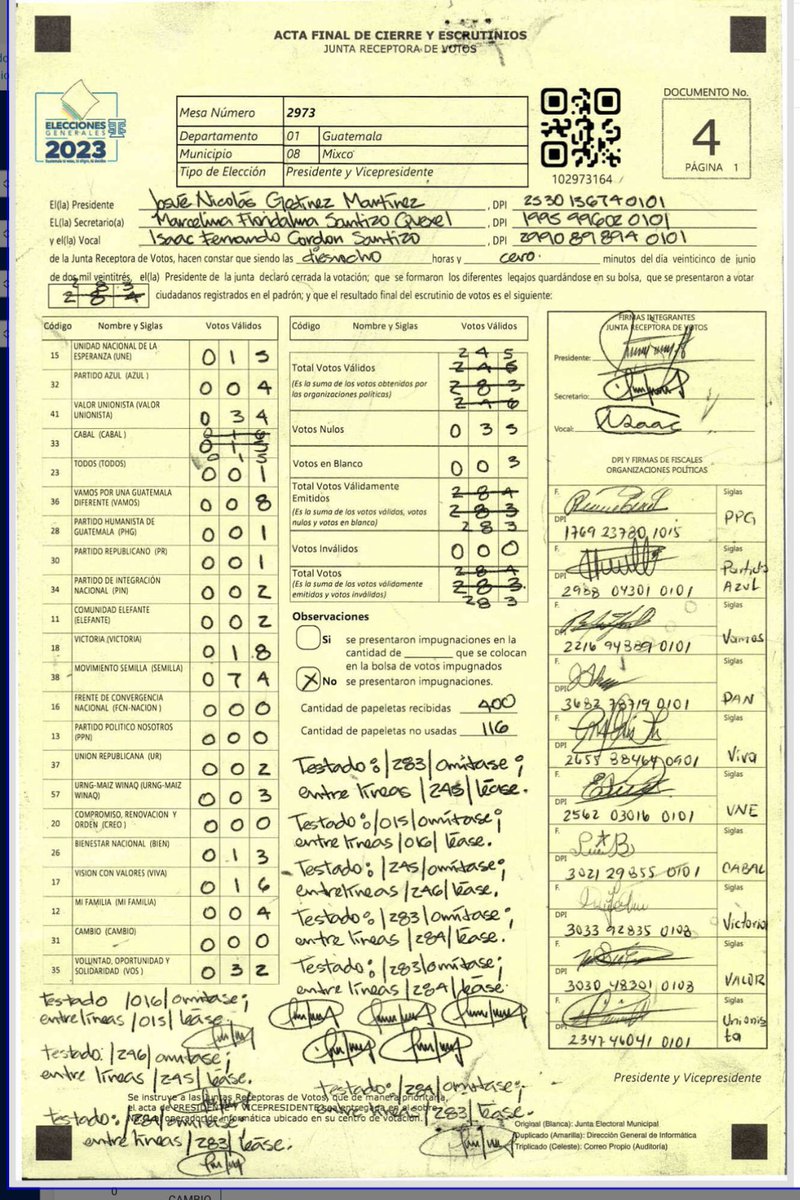 ACTA FINAL DE CIERRE Y ESCRUTINIOS
JUNTA RECEPTORA DE VOTOS
ELECCIONES
GENERALES
2023
Mesa Número 2973
Departamento 01 Guatemala
Municipio 08 Mixco
Tipo de Elección Presidente y Vicepresidente
102973164
DOCUMENTO No.
4
PÁGINA 1
El(la) Presidente Josue Nicolás Martínez , DPI 2530 13674 0101
EL(la) Secretario(a) Marcelina Floridalma Santizo , DPI 1995 99602 0101
y el(la) Vocal Isaac Fernando Cordon Santizo , DPI 2990 89894 0101
de la Junta Receptora de Votos, hacen constar que siendo las horas y cero. minutos del día veinticinco de junio
de dos mil veintitrés, el(la) Presidente de la junta declaró cerrada la votación; que se formaron los diferentes legajos guardándose en su bolsa, que se presentaron a votar
283
284 ciudadanos registrados en el padrón; y que el resultado final del escrutinio de votos es el siguiente:
Código Nombre y Siglas Votos Válidos
15 UNIDAD NACIONAL DE LA ESPERANZA (UNE) 015
32 PARTIDO AZUL (AZUL ) 004
41 VALOR UNIONISTA (VALOR UNIONISTA) 034
33 CABAL (CABAL ) 016 015
23 TODOS (TODOS) 001
36 VAMOS POR UNA GUATEMALA DIFERENTE (VAMOS) 008
28 PARTIDO HUMANISTA DE GUATEMALA (PHG) 001
30 PARTIDO REPUBLICANO (PR) 001
34 PARTIDO DE INTEGRACIÓN NACIONAL (PIN) 002
11 COMUNIDAD ELEFANTE (ELEFANTE) 002
18 VICTORIA (VICTORIA) 018
38 MOVIMIENTO SEMILLA (SEMILLA) 074
16 FRENTE DE CONVERGENCIA NACIONAL (FCN-NACION ) 000
13 PARTIDO POLITICO NOSOTROS (PPN) 000
37 UNION REPUBLICANA (UR) 002
57 URNG-MAIZ WINAQ (URNG-MAIZ WINAQ) 003
20 COMPROMISO, RENOVACION Y ORDEN (CREO ) 000
26 BIENESTAR NACIONAL (BIEN) 013
17 VISION CON VALORES (VIVA) 016
12 MI FAMILIA (MI FAMILIA) 004
31 CAMBIO (CAMBIO) 000
35 VOLUNTAD, OPORTUNIDAD Y SOLIDARIDAD (VOS ) 032
Código Nombre y Siglas Votos Válidos
245
Total Votos Válidos 246
(Es la suma de los votos obtenidos por 283
las organizaciones políticas) 246
Votos Nulos 035
Votos en Blanco 003
Total Votos Válidamente 284
Emitidos 283
(Es la suma de los votos válidos, votos
nulos y votos en blanco) 283
Votos Inválidos 000
Total Votos 284
(Es la suma de los votos válidamente 283
emitidos y votos inválidos) 283
Observaciones
Si se presentaron impugnaciones en la
cantidad de ________ que se colocan
en la bolsa de votos impugnados
X No se presentaron impugnaciones.
Cantidad de papeletas recibidas 400
Cantidad de papeletas no usadas 116
Testado: /283/ omítase;
entre líneas /245/ léase.
Testado: /015/ omítase;
entre líneas /016/ léase.
Testado: /245/ omítase;
entre líneas /246/ léase.
Testado: /283/ omítase;
entre líneas /284/ léase.
Testado: /283/ omítase;
entre líneas /284/ léase.
FIRMAS INTEGRANTES
JUNTA RECEPTORA DE VOTOS
Presidente:
Secretario:
Vocal: Isaac
DPI Y FIRMAS DE FISCALES
ORGANIZACIONES POLÍTICAS
F. Siglas
DPI 1769 23780 1015 PPG
F. Siglas
DPI 2988 04301 0101 Partido Azul
F. Siglas
DPI 2216 94389 0101 Vamos
F. Siglas
DPI 3682 78719 0101 PAN
F. Siglas
DPI 2655 88464 0901 Viva
F. Siglas
DPI 2562 03016 0101 UNE
F. Siglas
DPI 3021 29855 0101 CABAL
F. Siglas
DPI 3033 92835 0108 Victoria
F. Siglas
DPI 3030 48201 0108 VALOR
F. Siglas
DPI 2347 46041 0101 Unionista
Testado /016/ omítase;
entre líneas /015/ léase.
Testado: /246/ omítase;
entre líneas /245/ léase.
Testado: /284/ omítase
entre líneas /283/ léase.
Testado: /284/ omítase;
entre líneas /283/ léase.
Presidente y Vicepresidente
Se instruye a las Juntas Receptoras de Votos, que de manera prioritaria,
el acta de PRESIDENTE Y VICEPRESIDENTE sea entregada en el sobre
operador de informática ubicado en su centro de votación.
Original (Blanca): Junta Electoral Municipal
Duplicado (Amarilla): Dirección General de Informática
Triplicado (Celeste): Correo Propio (Auditoría)
0 CAMBIO